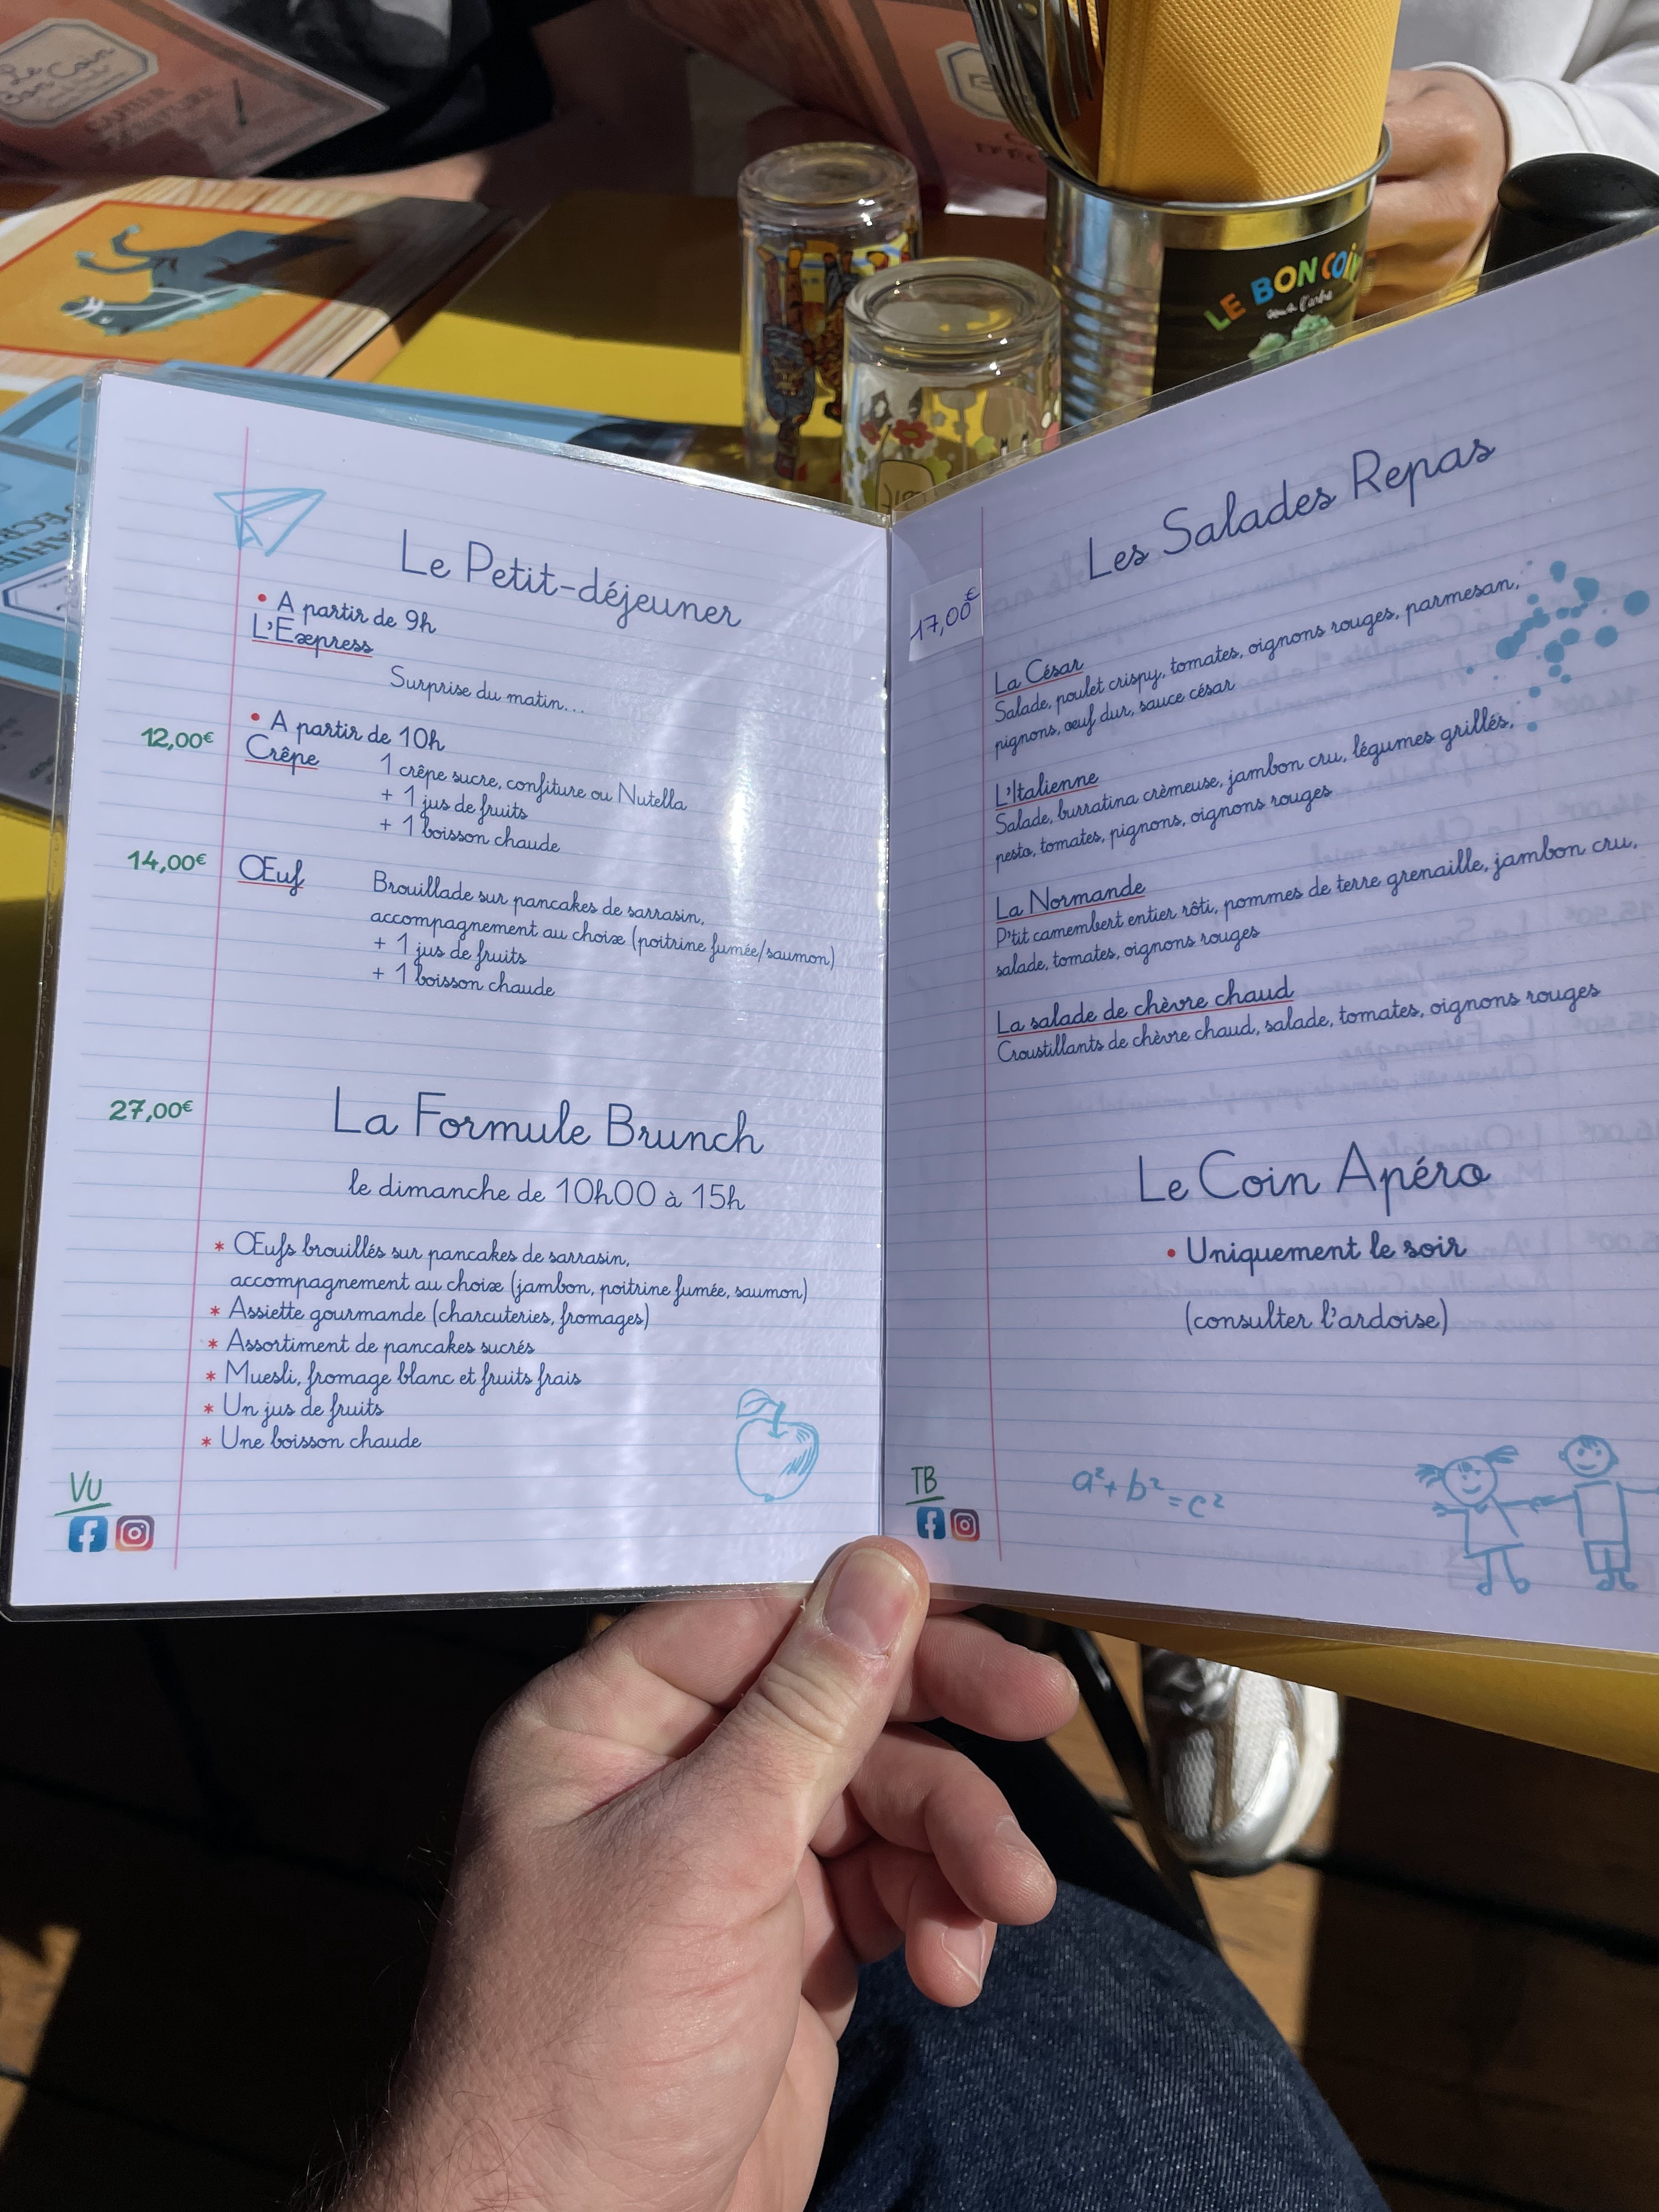 Le
Bon Coin
CAHIER
LE BON COIN
sous l'arbre
Le Petit-déjeuner
• A partir de 9h
L'Express
Surprise du matin...
• A partir de 10h
12,00€ Crêpe 1 crêpe sucre, confiture ou Nutella
+ 1 jus de fruits
+ 1 boisson chaude
14,00€ Œuf Brouillade sur pancakes de sarrasin,
accompagnement au choix (poitrine fumée/saumon)
+ 1 jus de fruits
+ 1 boisson chaude
27,00€ La Formule Brunch
le dimanche de 10h00 à 15h
* Œufs brouillés sur pancakes de sarrasin,
accompagnement au choix (jambon, poitrine fumée, saumon)
* Assiette gourmande (charcuteries, fromages)
* Assortiment de pancakes sucrés
* Muesli, fromage blanc et fruits frais
* Un jus de fruits
* Une boisson chaude
VU
Les Salades Repas
17,00€
La César
Salade, poulet crispy, tomates, oignons rouges, parmesan,
pignons, œuf dur, sauce césar
L'Italienne
Salade, burratina crèmeuse, jambon cru, légumes grillés,
pesto, tomates, pignons, oignons rouges
La Normande
P'tit camembert entier rôti, pommes de terre grenaille, jambon cru,
salade, tomates, oignons rouges
La salade de chèvre chaud
Croustillants de chèvre chaud, salade, tomates, oignons rouges
Le Coin Apéro
• Uniquement le soir
(consulter l'ardoise)
TB
a²+ b² = c²